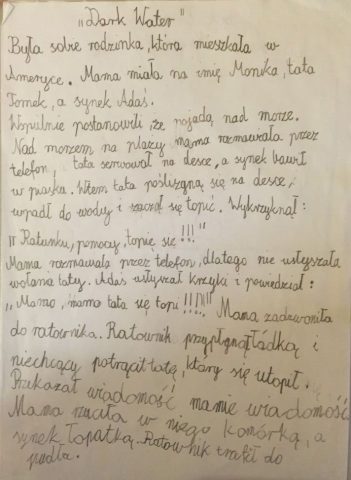 "Dark Water"
Była sobie rodzinka, która mieszkała w
Ameryce. Mama miała na imię Monika, tata
Tomek, a synek Adaś.
Wspulnie postanowili, że pojadą nad morze.
Nad morzem na plaży mama rozmawiała przez
telefon, tata serwował na desce, a synek bawił
w piasku. Wtem tata pośliznął się na desce,
wpadł do wody i zaczął się topić. Wykrzyknął:
"Ratunku, pomocy, topię się!!!"
Mama rozmawiała przez telefon, dlatego nie usłyszała
wołania taty. Adaś usłyszał krzyki i powiedział:
"Mamo, mamo tata się topi!!!!" Mama zadzwoniła
do ratownika. Ratownik przypłynął łódką i
niechcący potrącił tatę, który się utopił.
Przekazał wiadomość mamie wiadomość.
Mama rzuciła w niego komórką, a
synek łopatką. Ratownik trafił do
pudła.